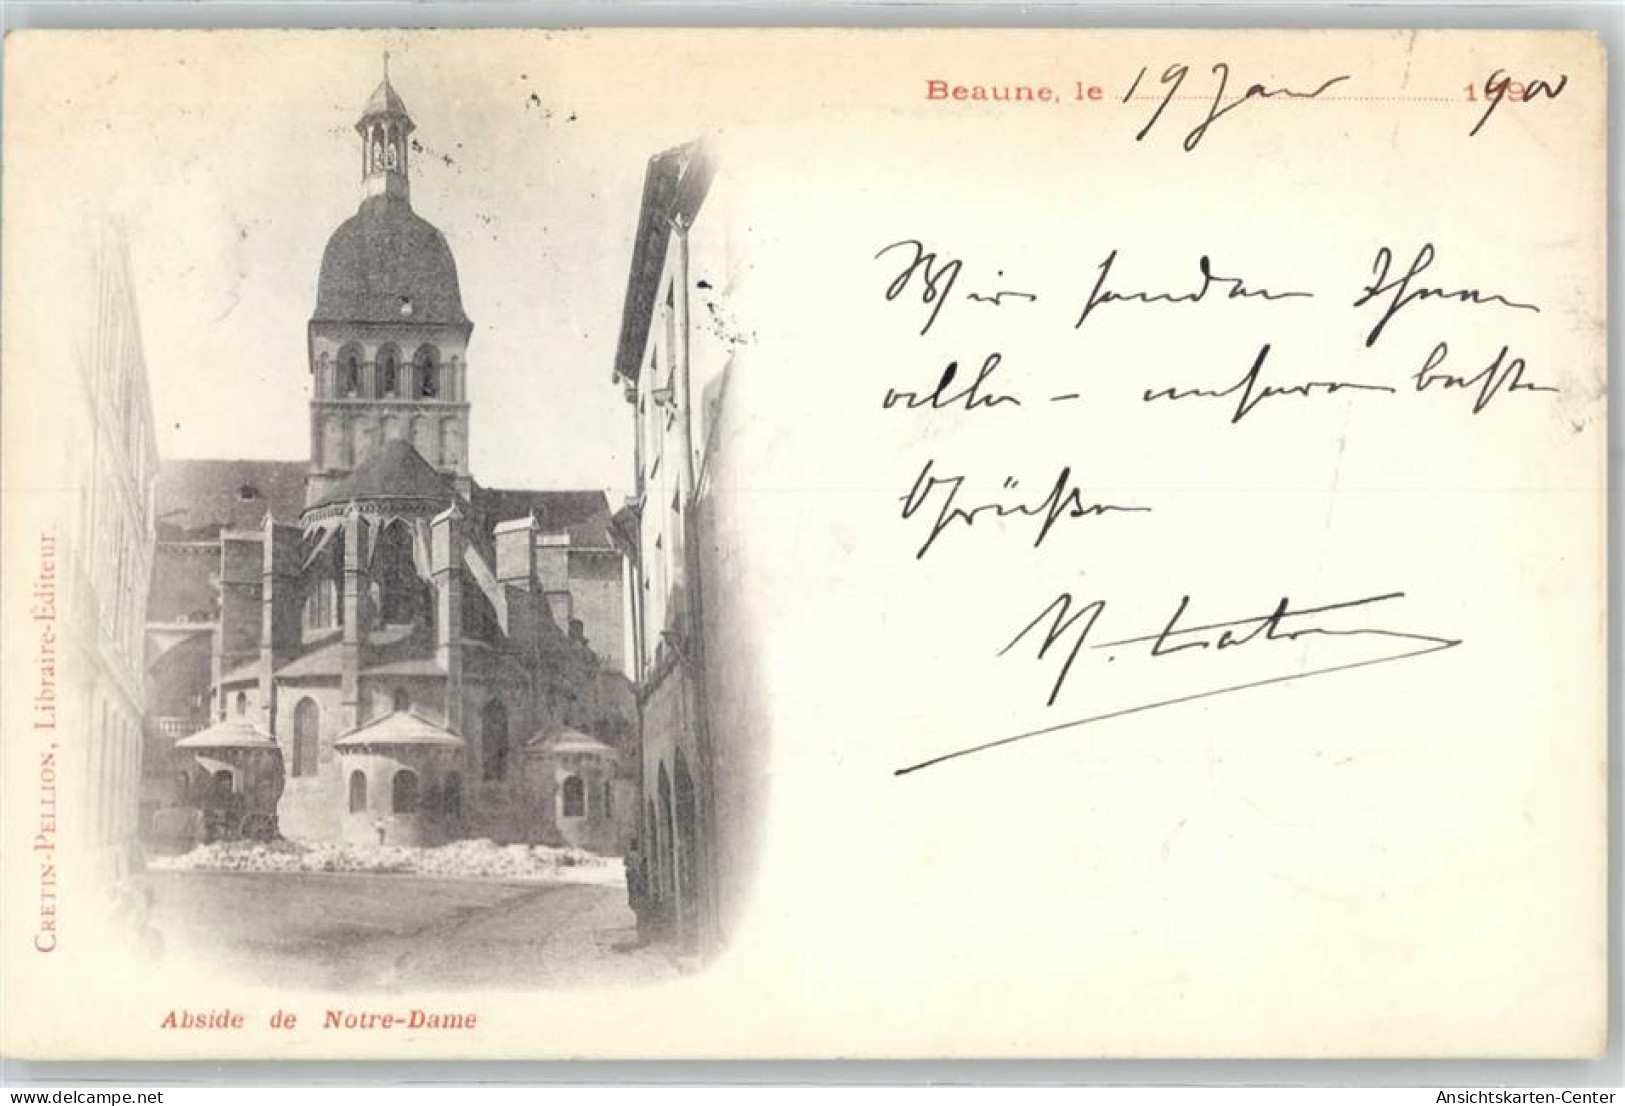 Beaune, le 19 Jan 1900
Wir senden Ihnen
alle – unsere beste
Grüße
CRETIN-PELLION, Libraire-Éditeur.
Abside de Notre-Dame
akpool.de
Ansichtskarten-Center